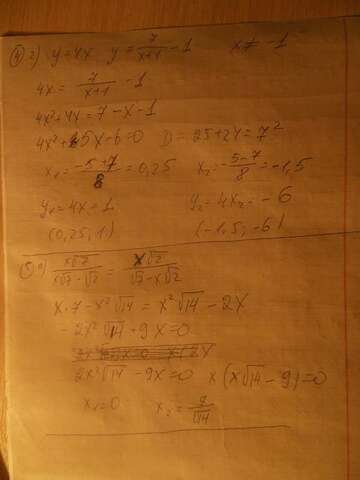 ④ 2) y=4x y=7/(x+1) -1 x≠-1
4x = 7/(x+1) -1
4x²+4x=7-x-1
4x²+5x-6=0 D=25+24=7²
x₁=(-5+7)/8=0,25 x₂=(-5-7)/8=-1,5
y₁=4x=1 y₂=4x₂=-6
(0,25; 1) (-1,5; -6)
⑤ a) x√7/(x√7-√2) = x√2/(√7-x√2)
x·7-x²√14 = x²√14-2x
-2x²√14+9x=0
2x²√14-9x=0 x(x√14-9)=0
x₁=0 x₂=9/√14